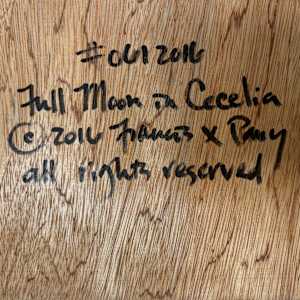 #0612016
Full Moon in Cecelia
© 2016 Francis X Pavy
all rights reserved